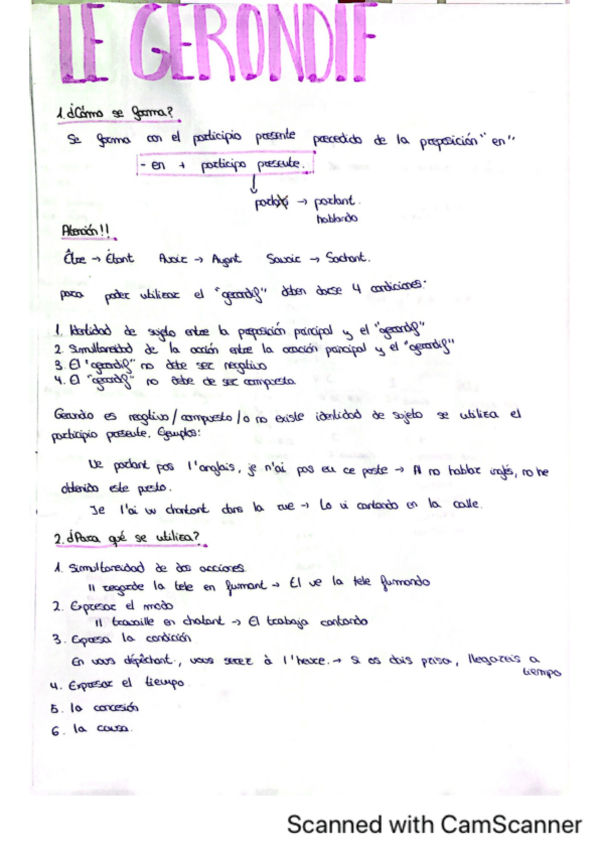 LE GÉRONDIF
1. ¿Cómo se forma?
Se forma con el participio presente precedido de la preposición "en"
- en + participo presente.
parlons → parlant.
hablando
Atención!!
Être → Étant Avoir → Ayant Savoir → Sachant.
para poder utilizar el "gerondif" deben darse 4 condiciones:
1. Identidad de sujeto entre la preposición principal y el "gerondif"
2. Simultaneidad de la acción entre la oración principal y el "gerondif"
3. El "gerondif" no debe ser negativo
4. El "gerondif" no debe de ser compuesto
Cuando es negativo/compuesto/o no existe identidad de sujeto se utiliza el
participio presente. Ejemplos:
Ne parlant pas l'anglais, je n'ai pas eu ce poste → Al no hablar inglés, no he
obtenido este puesto.
Je l'ai vu chantant dans la rue → Lo vi cantando en la calle.
2. ¿Para qué se utiliza?
1. Simultaneidad de dos acciones
Il regarde la tele en fumant → El ve la tele fumando
2. Expresar el modo
Il travaille en chatant → El trabaja cantando
3. Expresa la condición
En vous dépêchant, vous serez à l'heure. → Si os dais prisa, llegareis a
tiempo
4. Expresar el tiempo
5. la concesión
6. la causa.
Scanned with CamScanner